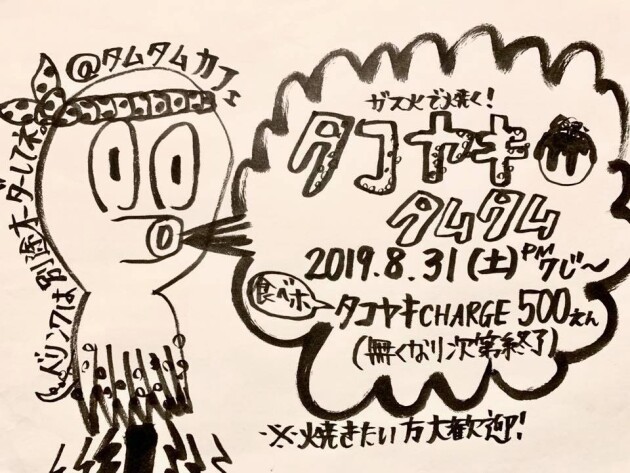 @タムタムカフェ
ガス火で焼く!
タコヤキ
タムタム
2019.8.31(土)PM7じ〜
食べホ
タコヤキCHARGE 500えん
(無くなり次第終了)
※焼きたい方大歓迎!
ドリンクは別途オーダーしてネ。